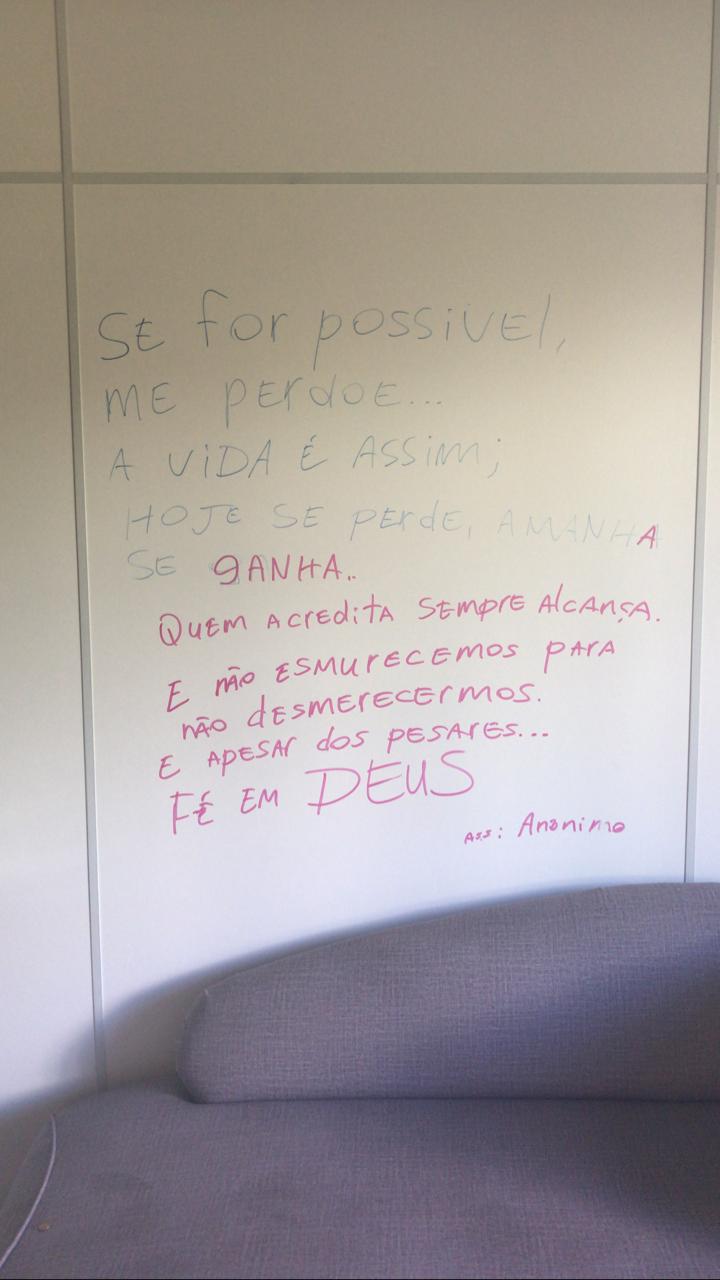 SE for possivel,
ME perdoe...
A ViDA É ASSim;
HOJE SE perde, AMANHA
SE gANHA..
Quem Acredita sempre AlcANçA.
E não ESMURECEMOS pARA
não desmerecermos.
E APESAr dos PESARES...
FÉ EM DEUS
Ass: Anonimo